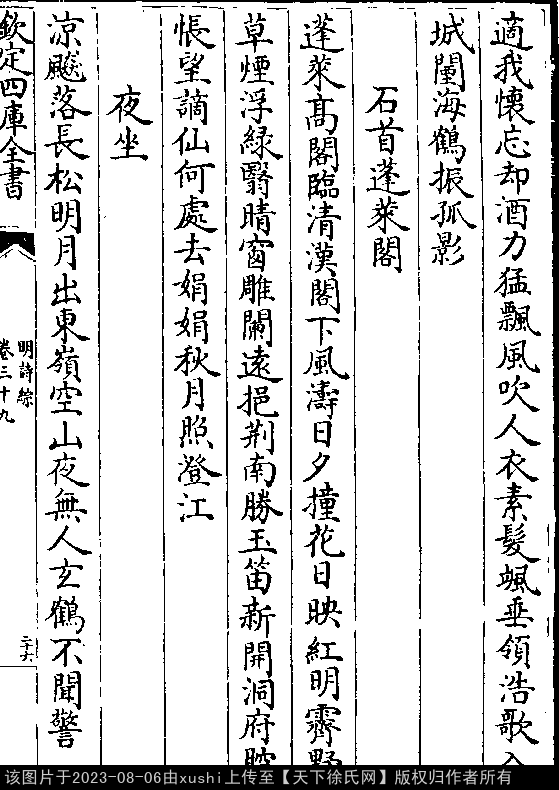 適我懷忘却酒力猛飄風吹人衣素髮颯垂領浩歌入
城闉海鶴振孤影
石首蓬萊閣
蓬萊髙閣臨清漢閣下風濤日夕撞花日映紅明霽野
草煙浮緑翳晴窗雕闌遠挹荆南勝玉笛新開洞府腔
悵望謫仙何處去娟娟秋月照澄江
夜坐
涼飈落長松明月出東嶺空山夜無人玄鶴不聞警
欽定四庫全書
明詩綜
卷三十九
二十六
该图片于2023-08-06由xushi上传至【天下徐氏网】版权归作者所有